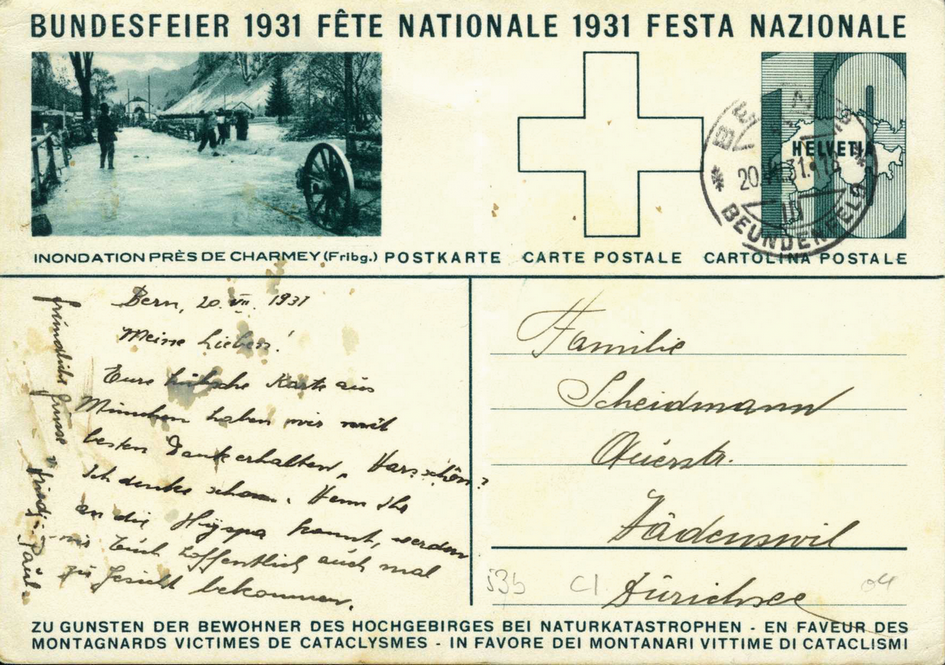 BUNDESFEIER 1931 FÊTE NATIONALE 1931 FESTA NAZIONALE
10
HELVETIA
BEUNDENFELD
INONDATION PRÈS DE CHARMEY (Fribg.) POSTKARTE CARTE POSTALE CARTOLINA POSTALE
Bern, 20. VII. 1931
Meine Lieben!
Eure hübsche Karte aus
München haben wir mit
besten Dank erhalten. War's schön?
Ich denke schon. Wenn Ihr
an die Hyspa kommt, werden
wir Euch hoffentlich auch mal
zu Gesicht bekommen.
Grüsse
Paul
Familie
Scheidmann
Wädenswil
Zürichsee
53b C1 04
ZU GUNSTEN DER BEWOHNER DES HOCHGEBIRGES BEI NATURKATASTROPHEN - EN FAVEUR DES
MONTAGNARDS VICTIMES DE CATACLYSMES - IN FAVORE DEI MONTANARI VITTIME DI CATACLISMI